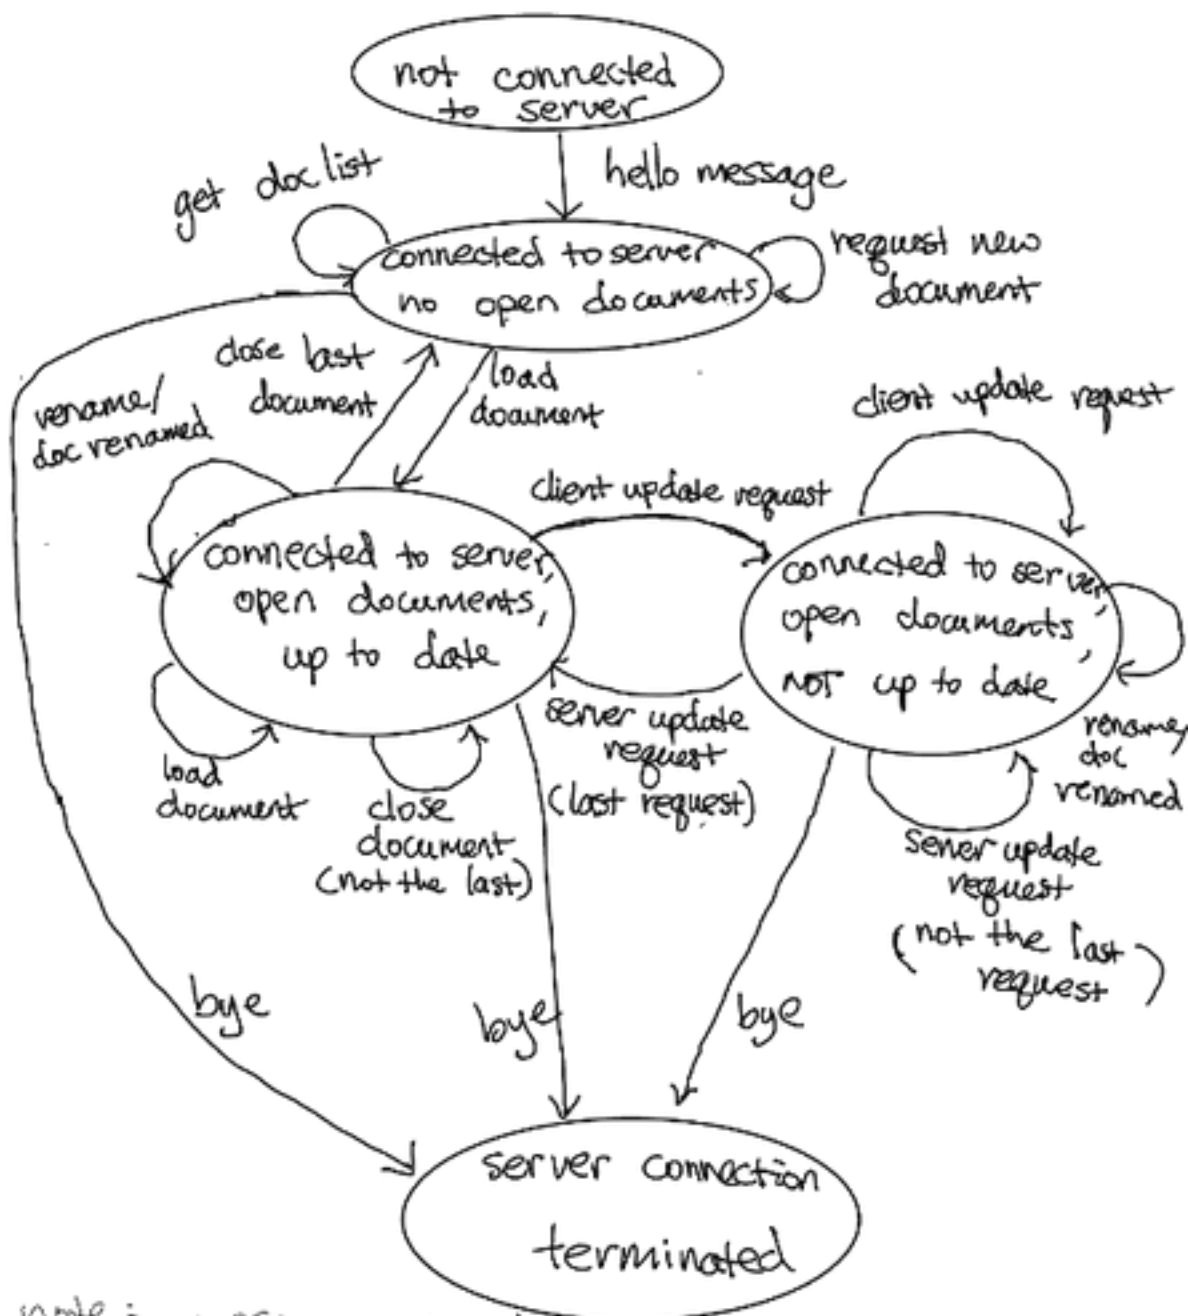 not connected
to server
hello message
get doc list
connected to server
no open documents
request new
document
close last
document
load
document
rename/
doc renamed
client update request
client update request
connected to server,
open documents,
up to date
connected to server,
open documents,
NOT up to date
server update
request
(last request)
rename/
doc
renamed
load
document
close
document
(not the last)
server update
request
(not the last
request)
bye
bye
bye
server connection
terminated